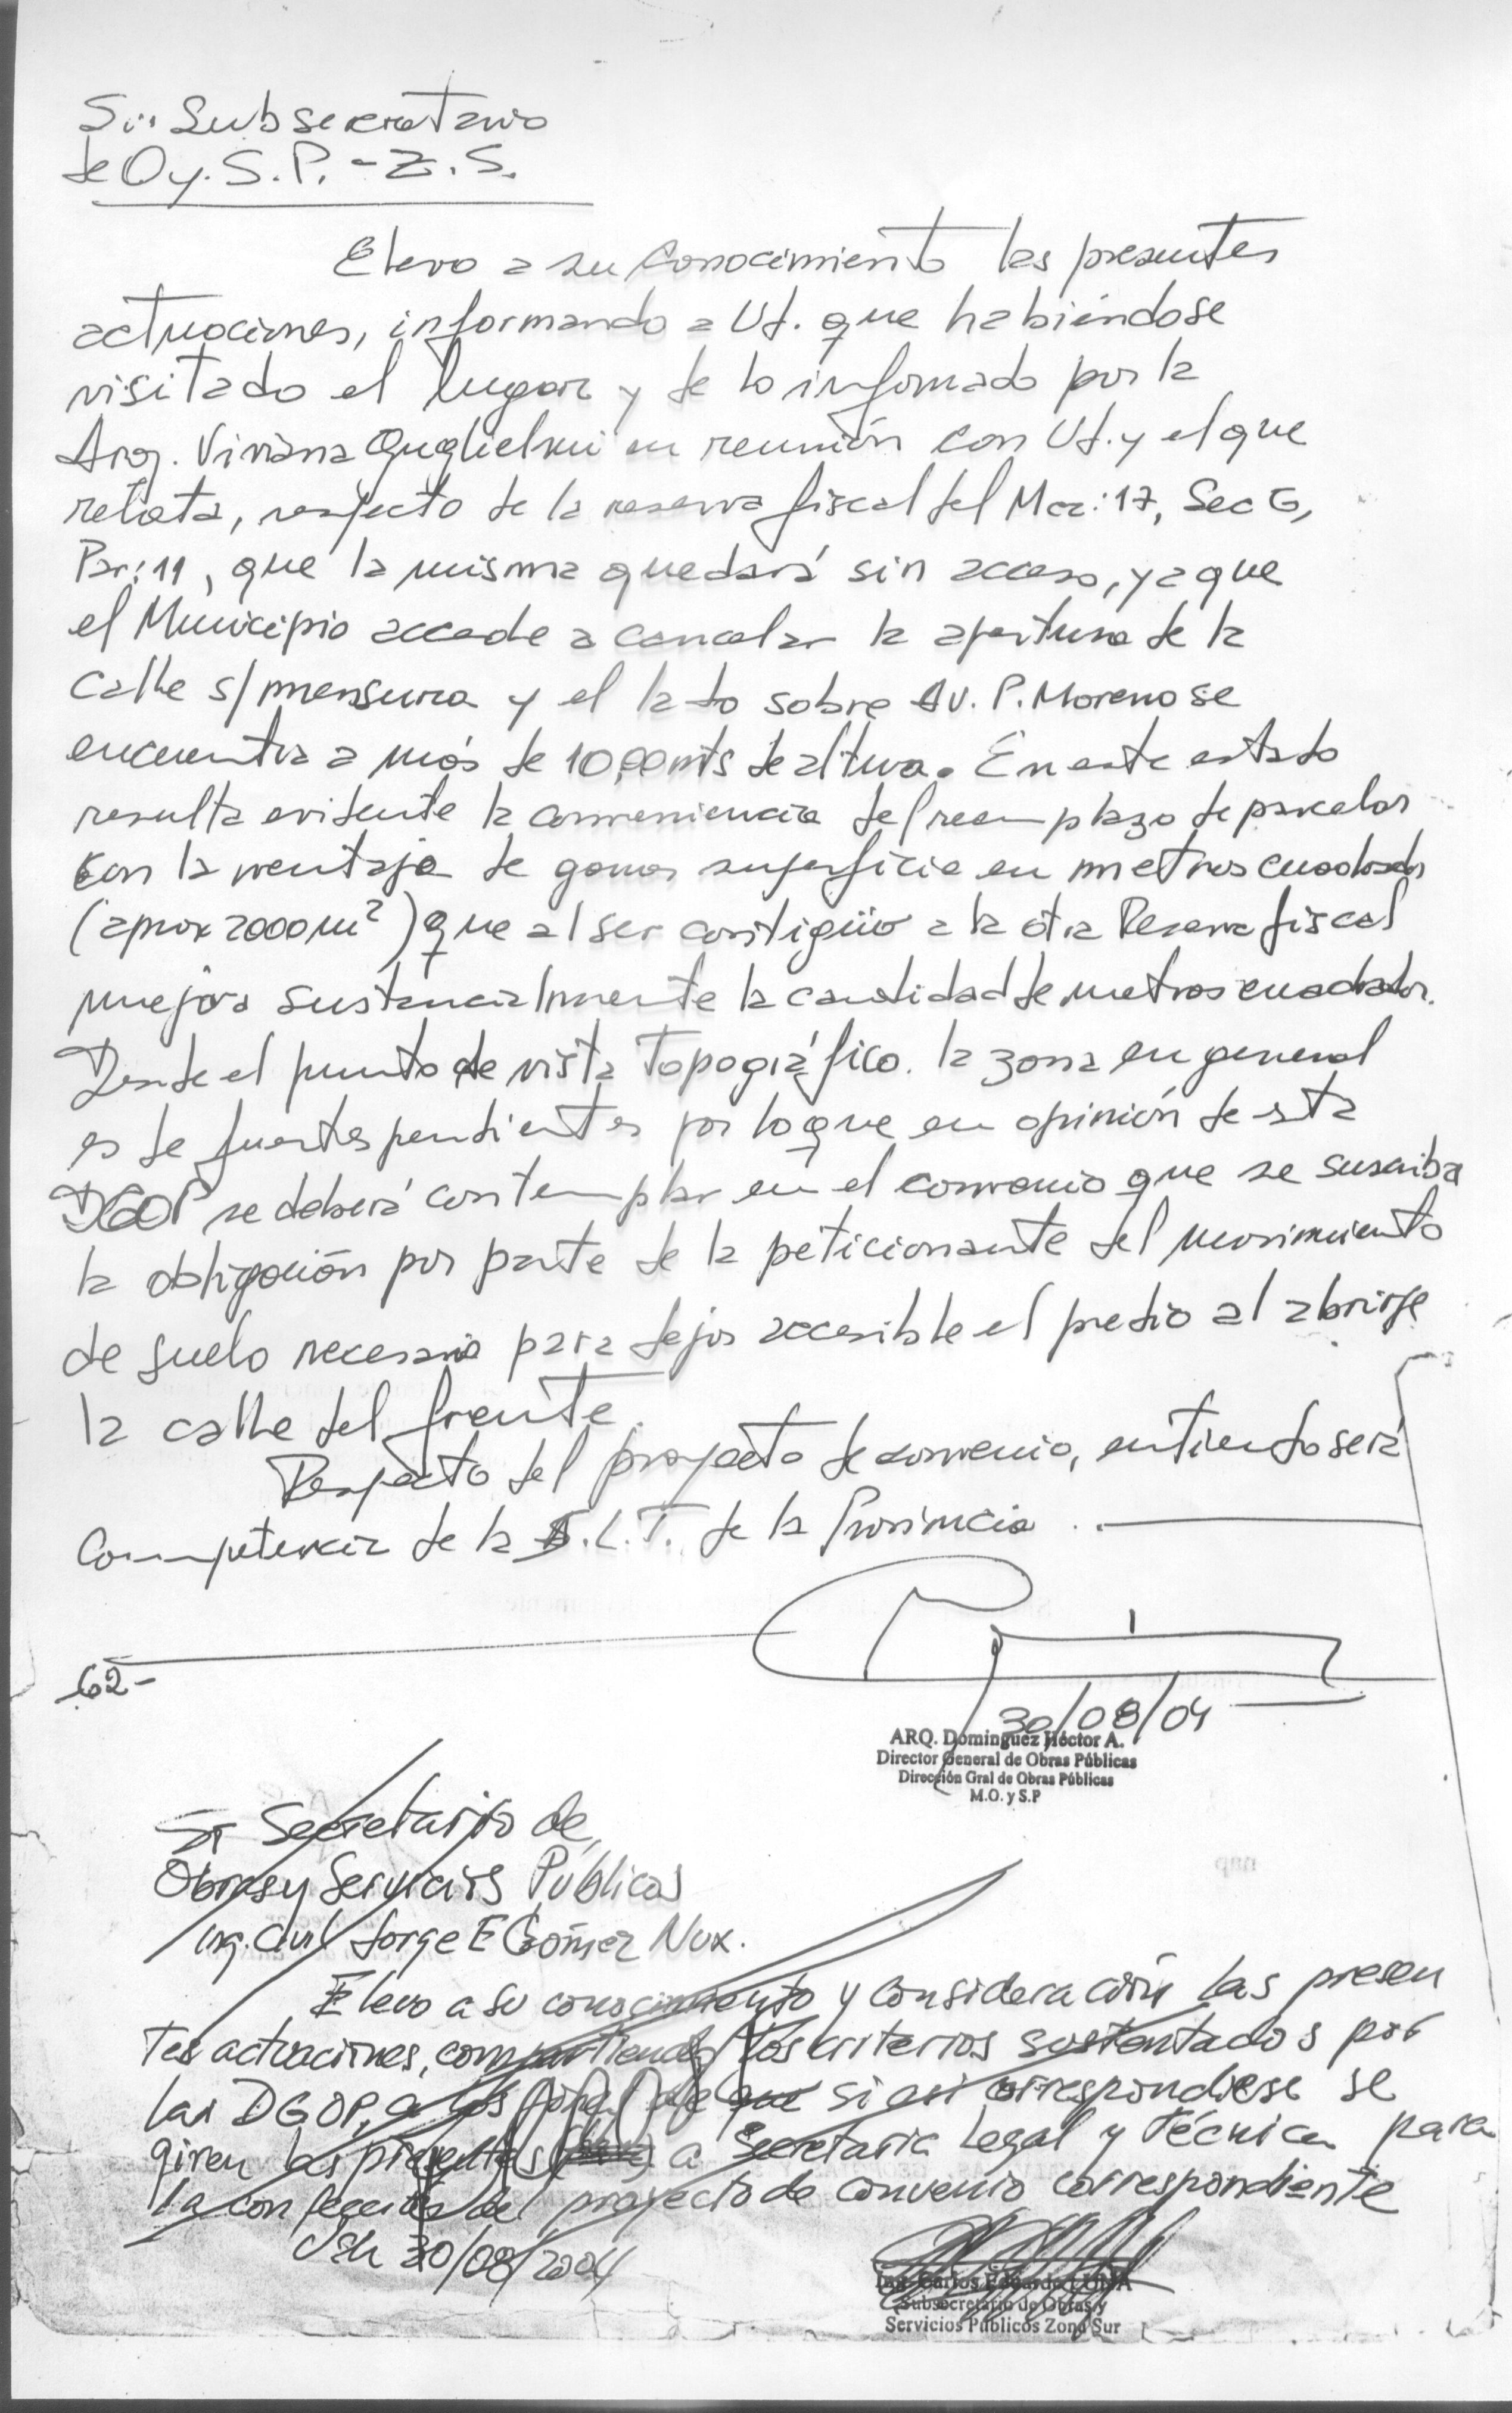 Sr. Subsecretario
de O y. S. P. - Z. S.
Elevo a su conocimiento las presentes
actuaciones, informando a Ud. que habiéndose
visitado el lugar y de lo informado por la
Arq. Viviana Guglielmi en reunión con Ud. y el que
relata, respecto de la reserva fiscal del Mac: 17, Sec G,
Par: 11, que la misma quedará sin acceso, ya que
el Municipio accede a cancelar la apertura de la
Calle s/ mensura y el lado sobre Av. P. Moreno se
encuentra a más de 10,00 mts de altura. En este estado
resulta evidente la conveniencia del reemplazo de parcelas
con la ventaja de ganar superficie en metros cuadrados
(aprox 2000 m²) que al ser contigüo a la otra Reserva fiscal
mejora sustancialmente la cantidad de metros cuadrados.
Desde el punto de vista topográfico. la zona en general
es de fuertes pendientes por lo que en opinión de esta
DGOP se deberá contemplar en el convenio que se suscriba
la obligación por parte de la peticionante del movimiento
de suelo necesario para dejar accesible el predio al abrirse
la calle del frente.
Respecto del proyecto de convenio, entiendo será
Competencia de la S.L.T. de la Provincia.
62-
30/08/04
ARQ. Dominguez Héctor A.
Director General de Obras Públicas
Dirección Gral de Obras Públicas
M.O. y S.P
Sr Secretario de
Obras y Servicios Públicos
Ing. Civil Jorge E Gómez Nux.
Elevo a su conocimiento y consideración las presen
tes actuaciones, compartiendo los criterios sostentados por
las DGOP, a los fines de que si asi correspondiese se
giren las presentes a Secretaria Legal y Técnica para
la confección del proyecto de convenio correspondiente
Ush 30/08/2004
Ing. Carlos Eduardo LUNA
Subsecretario de Obras y
Servicios Públicos Zona Sur